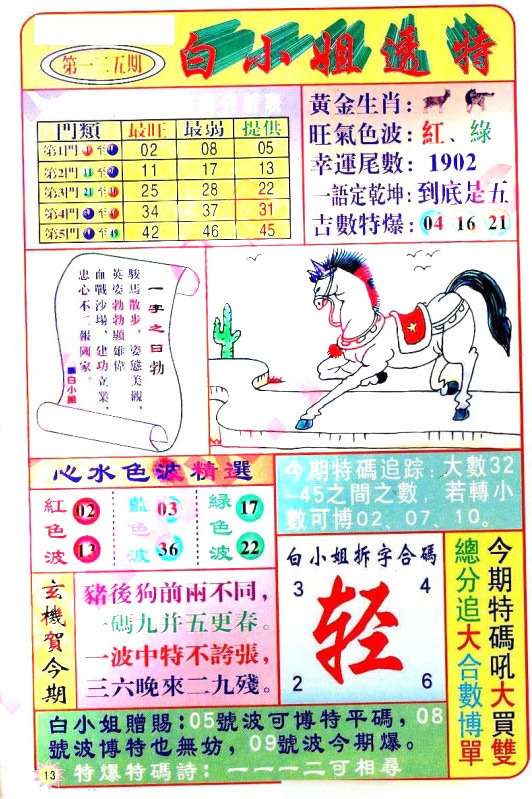 第一二五期
白小姐透特
門類 最旺 最弱 提供
第1門 至 02 08 05
第2門 至 11 17 13
第3門 至 25 28 22
第4門 至 34 37 31
第5門 至49 42 46 45
黃金生肖:
旺氣色波:紅、綠
幸運尾數:1902
一語定乾坤:到底是五
吉數特爆:04 16 21
一字之曰勃
駿馬散步、姿態美觀、
英姿勃勃顯雄偉
血戰沙場、建功立業、
忠心不二報國家。
白小姐
心水色波精選
紅色波 02 13
藍色波 03 36
綠色波 17 22
今期特碼追踪:大數32
-45之間之數,若轉小
數可博02、07、10。
玄機賀今期
豬後狗前兩不同,
一碼九并五更春。
一波中特不誇張,
三六晚來二九殘。
白小姐拆字合碼
3 4
轻
2 6
今期特碼吼大買雙
總分追大合數博單
白小姐贈賜:05號波可博特平碼,08
號波博特也無妨,09號波今期爆。
特爆特碼詩:一一一二可相尋
13